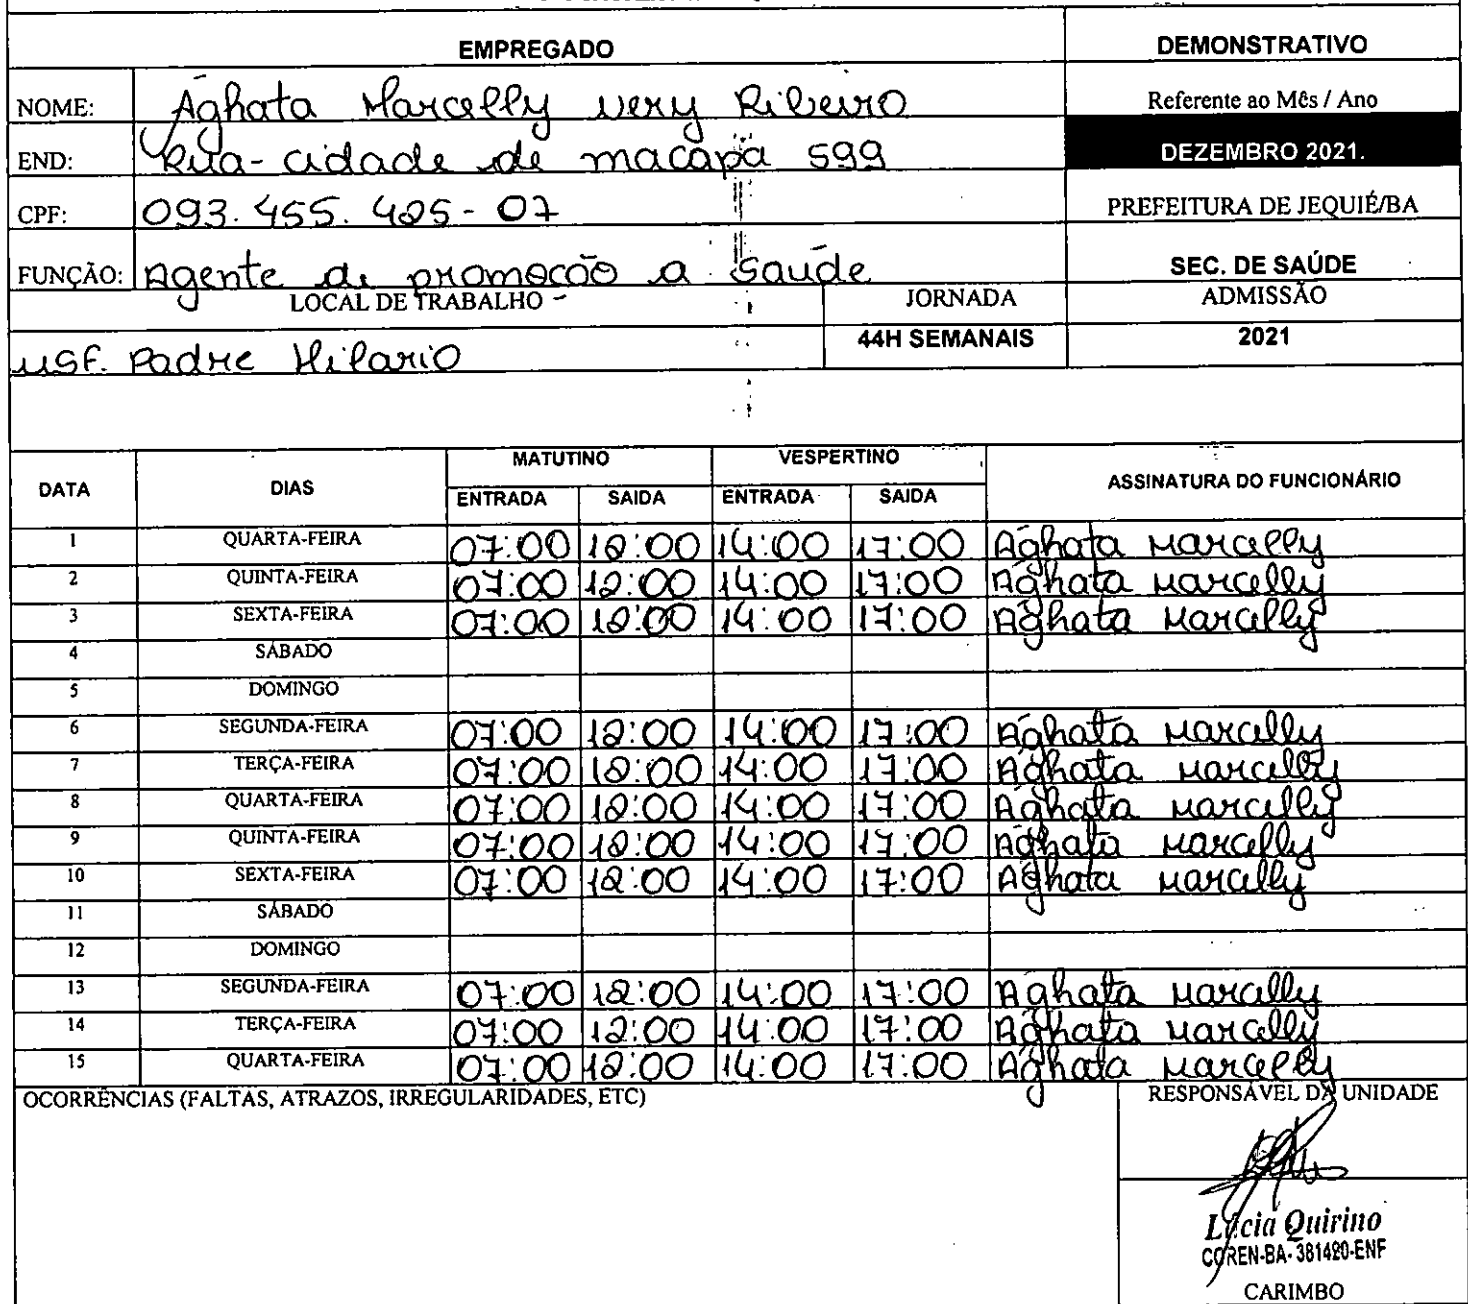 EMPREGADO DEMONSTRATIVO
NOME: Ághata Marcelly Nery Ribeiro Referente ao Mês / Ano
END: Rua - cidade de macapá 599 DEZEMBRO 2021.
CPF: 093.455.425-07 PREFEITURA DE JEQUIÉ/BA
FUNÇÃO: Agente de promoção a saúde SEC. DE SAÚDE
LOCAL DE TRABALHO - JORNADA ADMISSÃO
USF. Padre Hilario 44H SEMANAIS 2021
DATA DIAS MATUTINO VESPERTINO ASSINATURA DO FUNCIONÁRIO
ENTRADA SAIDA ENTRADA SAIDA
1 QUARTA-FEIRA 07:00 12:00 14:00 17:00 Ághata Marcelly
2 QUINTA-FEIRA 07:00 12:00 14:00 17:00 Ághata Marcelly
3 SEXTA-FEIRA 07:00 12:00 14:00 17:00 Ághata Marcelly
4 SÁBADO
5 DOMINGO
6 SEGUNDA-FEIRA 07:00 12:00 14:00 17:00 Ághata Marcelly
7 TERÇA-FEIRA 07:00 12:00 14:00 17:00 Ághata Marcelly
8 QUARTA-FEIRA 07:00 12:00 14:00 17:00 Ághata Marcelly
9 QUINTA-FEIRA 07:00 12:00 14:00 17:00 Ághata Marcelly
10 SEXTA-FEIRA 07:00 12:00 14:00 17:00 Ághata Marcelly
11 SÁBADO
12 DOMINGO
13 SEGUNDA-FEIRA 07:00 12:00 14:00 17:00 Ághata Marcelly
14 TERÇA-FEIRA 07:00 12:00 14:00 17:00 Ághata Marcelly
15 QUARTA-FEIRA 07:00 12:00 14:00 17:00 Ághata Marcelly
OCORRÊNCIAS (FALTAS, ATRAZOS, IRREGULARIDADES, ETC) RESPONSÁVEL DA UNIDADE
Lúcia Quirino
COREN-BA-381420-ENF
CARIMBO